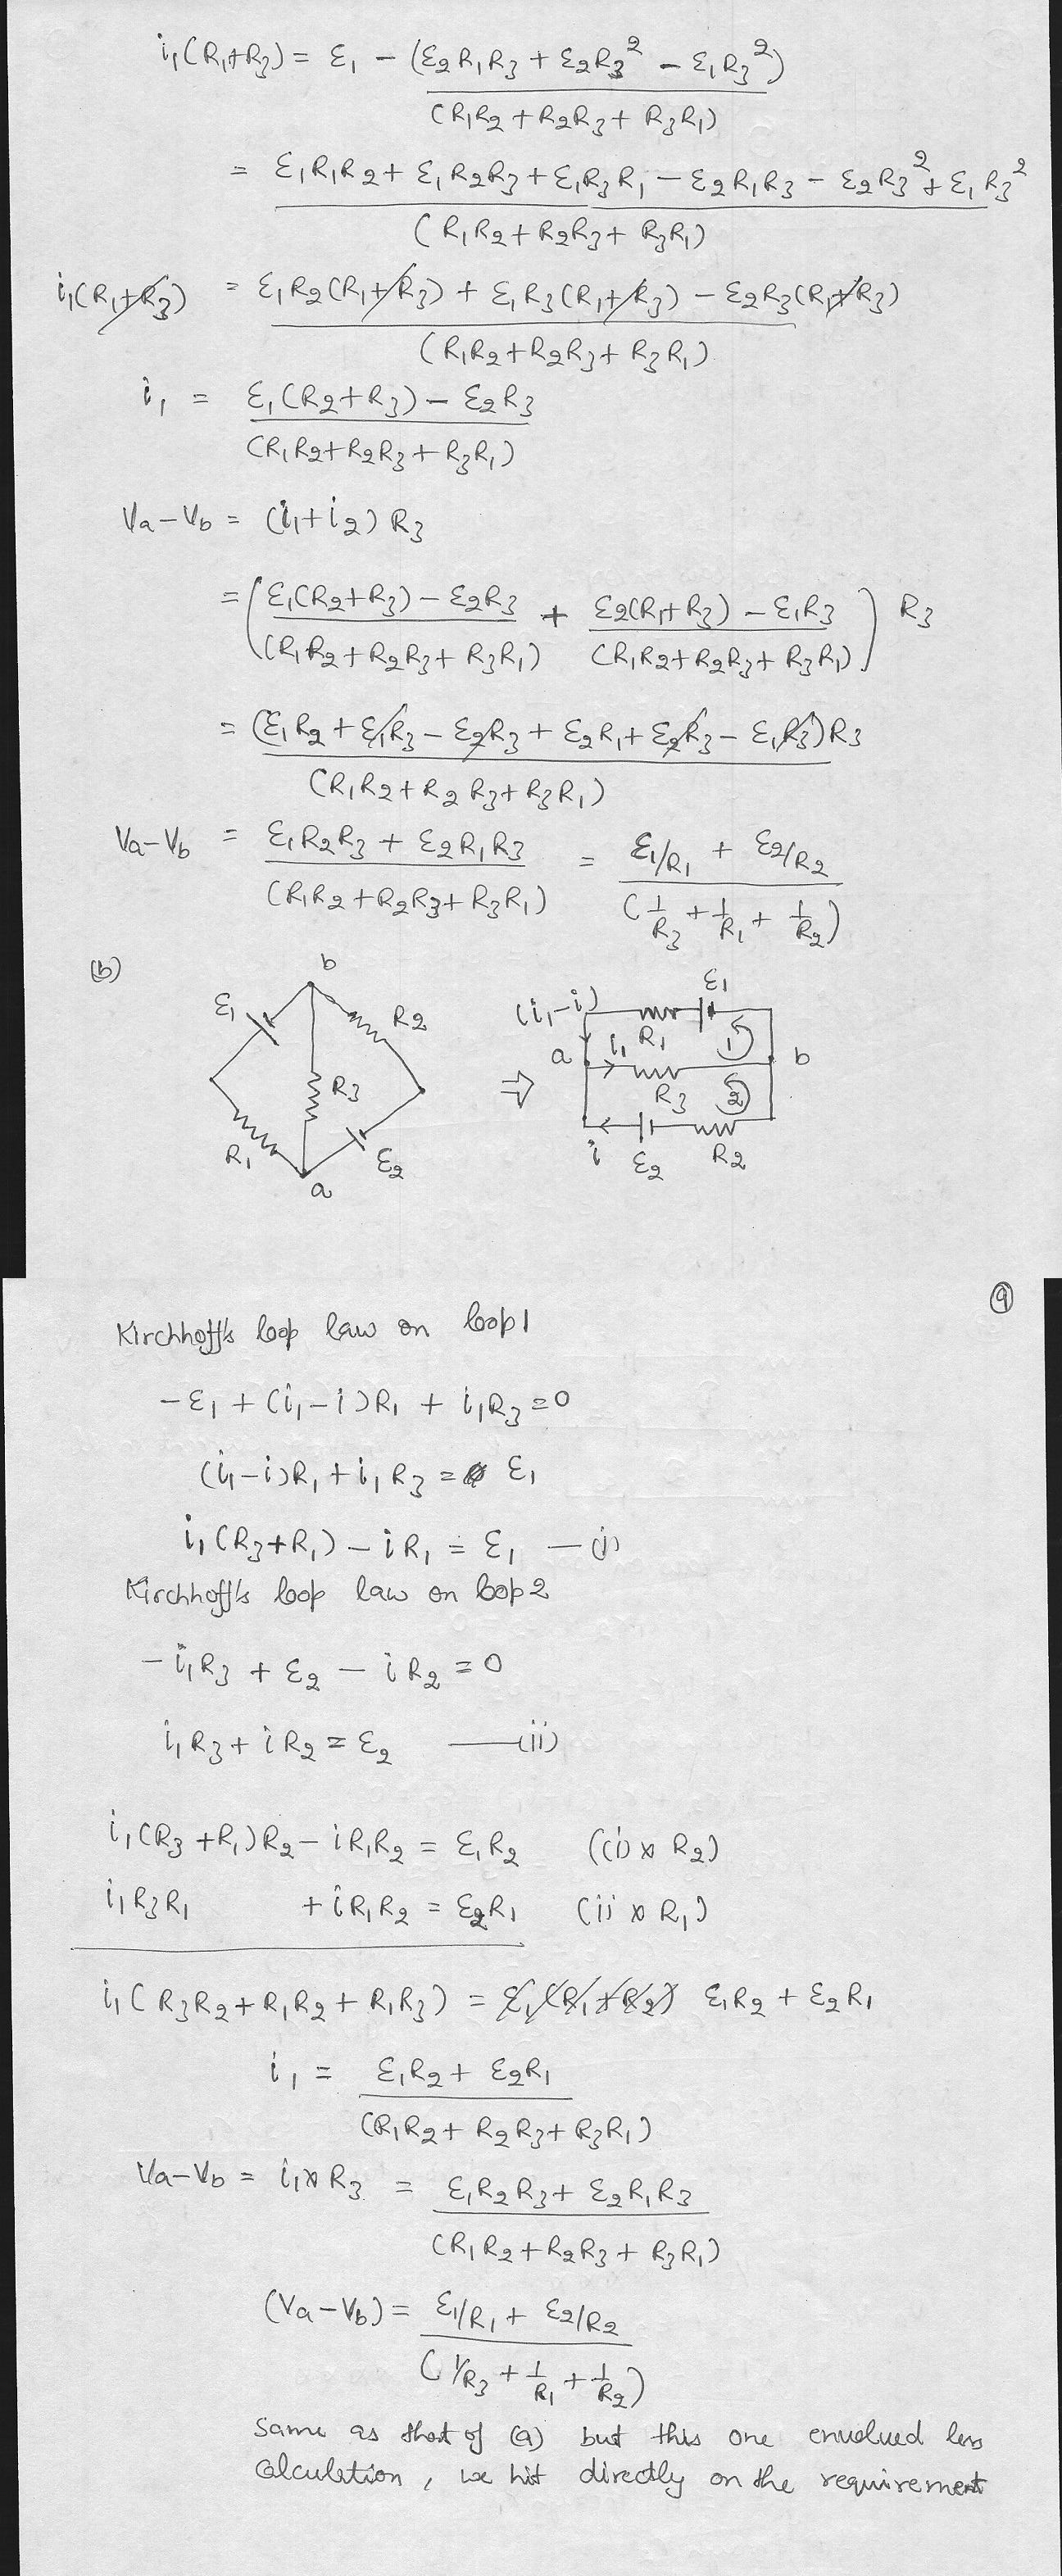 i₁(R₁+R₃) = ε₁ - (ε₂R₁R₃ + ε₂R₃² - ε₁R₃²)
(R₁R₂ + R₂R₃ + R₃R₁)
= ε₁R₁R₂ + ε₁R₂R₃ + ε₁R₃R₁ - ε₂R₁R₃ - ε₂R₃² + ε₁R₃²
(R₁R₂ + R₂R₃ + R₃R₁)
i₁(R₁+R₃) = ε₁R₂(R₁+R₃) + ε₁R₃(R₁+R₃) - ε₂R₃(R₁+R₃)
(R₁R₂+R₂R₃+R₃R₁)
i₁ = ε₁(R₂+R₃) - ε₂R₃
(R₁R₂+R₂R₃+R₃R₁)
Va-Vb = (i₁+i₂) R₃
= ( ε₁(R₂+R₃) - ε₂R₃ + ε₂(R₁+R₃) - ε₁R₃ ) R₃
(R₁R₂+R₂R₃+R₃R₁) (R₁R₂+R₂R₃+R₃R₁)
= (ε₁R₂ + ε₁R₃ - ε₂R₃ + ε₂R₁ + ε₂R₃ - ε₁R₃)R₃
(R₁R₂+R₂R₃+R₃R₁)
Va-Vb = ε₁R₂R₃ + ε₂R₁R₃ = ε₁/R₁ + ε₂/R₂
(R₁R₂+R₂R₃+R₃R₁) (1/R₃ + 1/R₁ + 1/R₂)
(b)
b
ε₁
R₂
R₃
R₁
ε₂
a
⇒
(i₁-i)
ε₁
a
i₁
R₁
1
b
R₃
2
i
ε₂
R₂
9
Kirchhoff's loop law on loop1
-ε₁ + (i₁-i)R₁ + i₁R₃ = 0
(i₁-i)R₁ + i₁R₃ = ε₁
i₁(R₃+R₁) - iR₁ = ε₁ —(i)
Kirchhoff's loop law on loop2
-i₁R₃ + ε₂ - iR₂ = 0
i₁R₃ + iR₂ = ε₂ —(ii)
i₁(R₃+R₁)R₂ - iR₁R₂ = ε₁R₂ ((i) x R₂)
i₁R₃R₁ + iR₁R₂ = ε₂R₁ (ii x R₁)
i₁(R₃R₂ + R₁R₂ + R₁R₃) = ε₁(R₁+R₂) ε₁R₂ + ε₂R₁
i₁ = ε₁R₂ + ε₂R₁
(R₁R₂ + R₂R₃ + R₃R₁)
Va-Vb = i₁xR₃ = ε₁R₂R₃ + ε₂R₁R₃
(R₁R₂ + R₂R₃ + R₃R₁)
(Va-Vb) = ε₁/R₁ + ε₂/R₂
(1/R₃ + 1/R₁ + 1/R₂)
Same as that of (a) but this one envolued less
calculation, we hit directly on the requirement